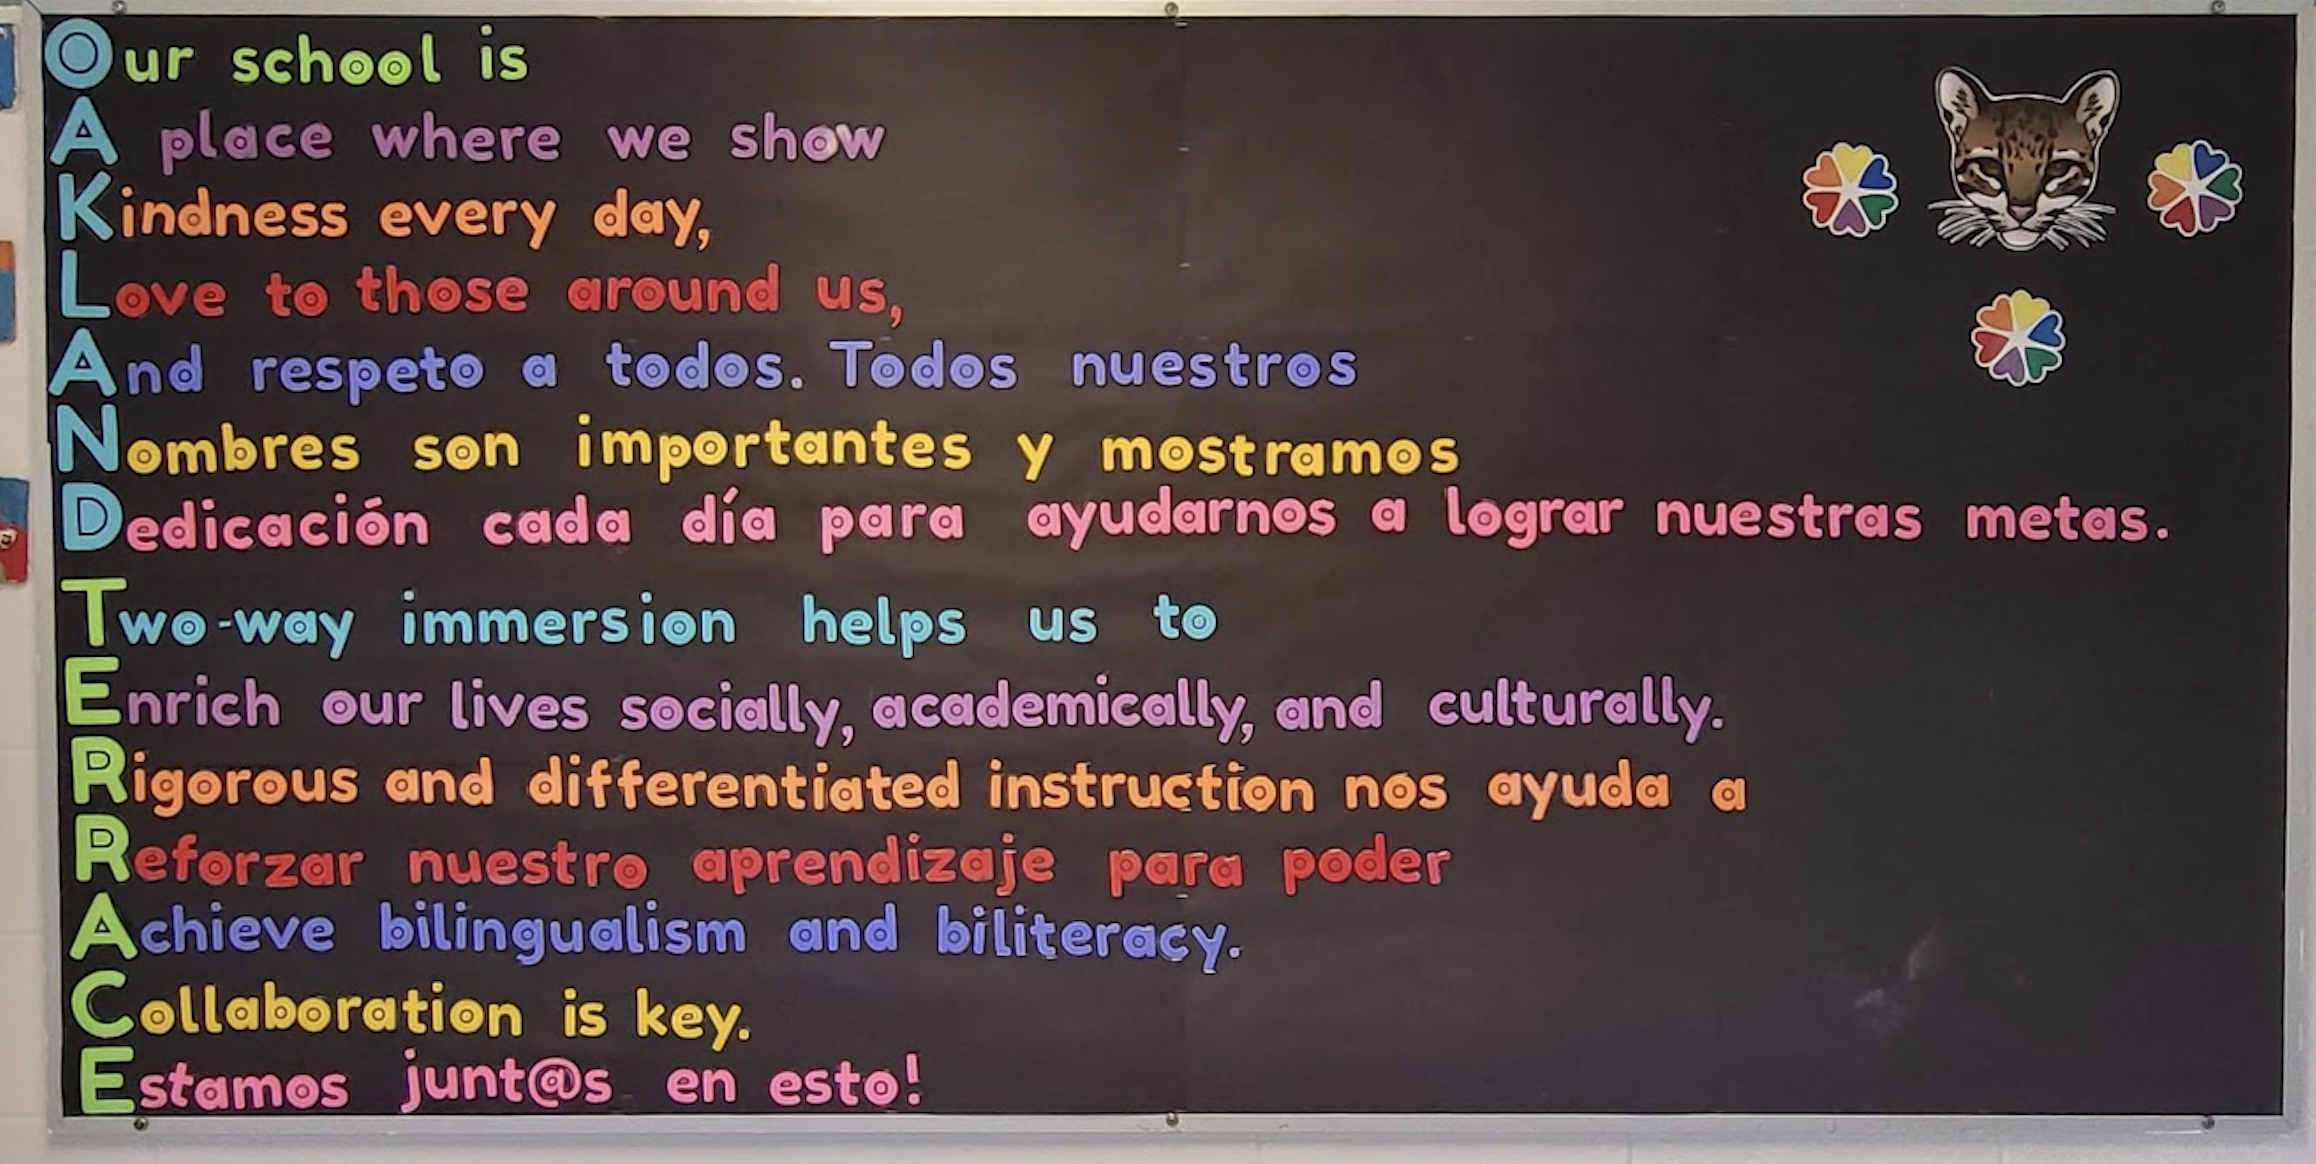 Our school is
A place where we show
Kindness every day,
Love to those around us,
And respeto a todos. Todos nuestros
Nombres son importantes y mostramos
Dedicación cada día para ayudarnos a lograr nuestras metas.
Two-way immersion helps us to
Enrich our lives socially, academically, and culturally.
Rigorous and differentiated instruction nos ayuda a
Reforzar nuestro aprendizaje para poder
Achieve bilingualism and biliteracy.
Collaboration is key.
Estamos junt@s en esto!